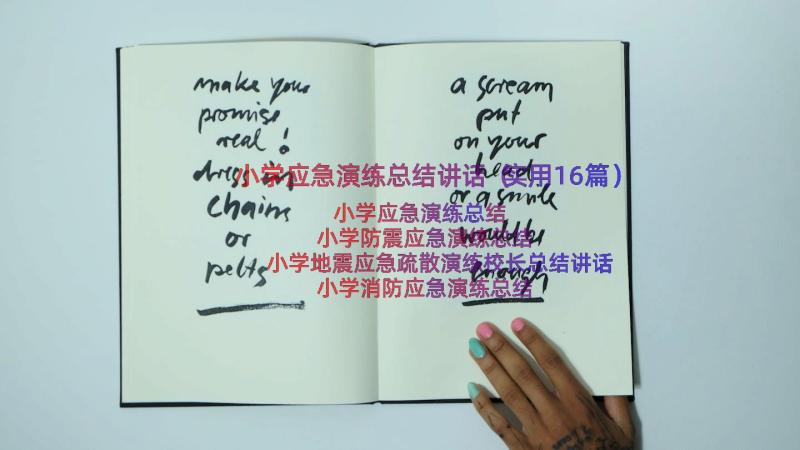 make your
promise
real!
dress in
chains
or
pelts
a scream
put
on your
head
or a smile
would be
enough
小学应急演练总结讲话（实用16篇）
小学应急演练总结
小学防震应急演练总结
小学地震应急疏散演练校长总结讲话
小学消防应急演练总结